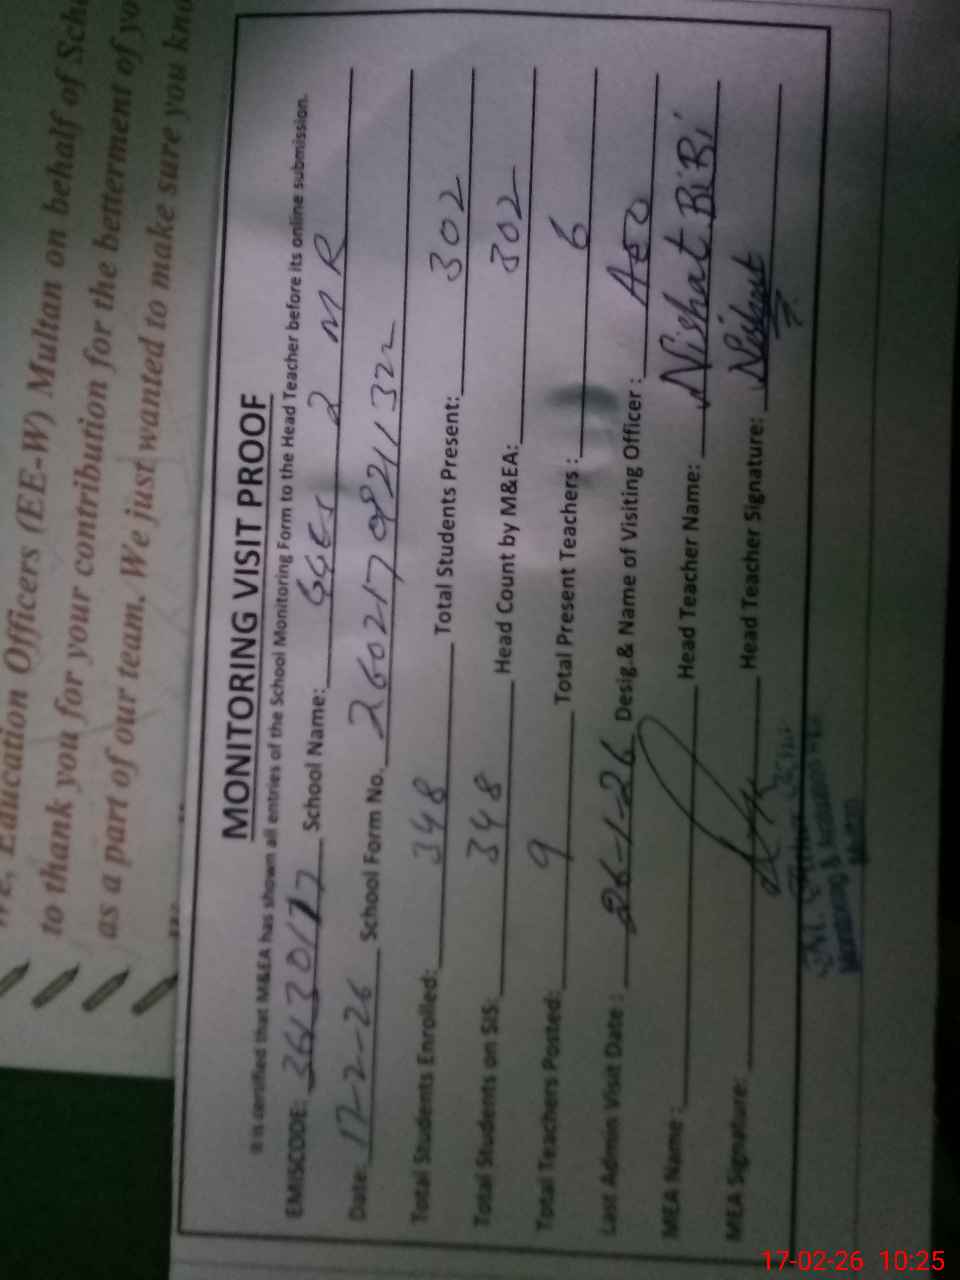 Education Officers (EE-W) Multan on behalf of
to thank you for your contribution for the betterment of
as a part of our team. We just wanted to make sure you
MONITORING VISIT PROOF
It is certified that M&EA has shown all entries of the School Monitoring Form to the Head Teacher before its online submission.
EMISCODE: 36130177 School Name: GGES 2 MR
Date: 17-2-26 School Form No. 26021708211322
Total Students Enrolled: 348 Total Students Present: 302
Total Students on SIS: 348 Head Count by M&EA: 302
Total Teachers Posted: 9 Total Present Teachers : 6
Last Admin Visit Date : 26-1-26 Desig & Name of Visiting Officer : AEO
MEA Name : Head Teacher Name: Nishat BiBi
MEA Signature: Head Teacher Signature: Nishat
Monitoring &
Multan
17-02-26 10:25